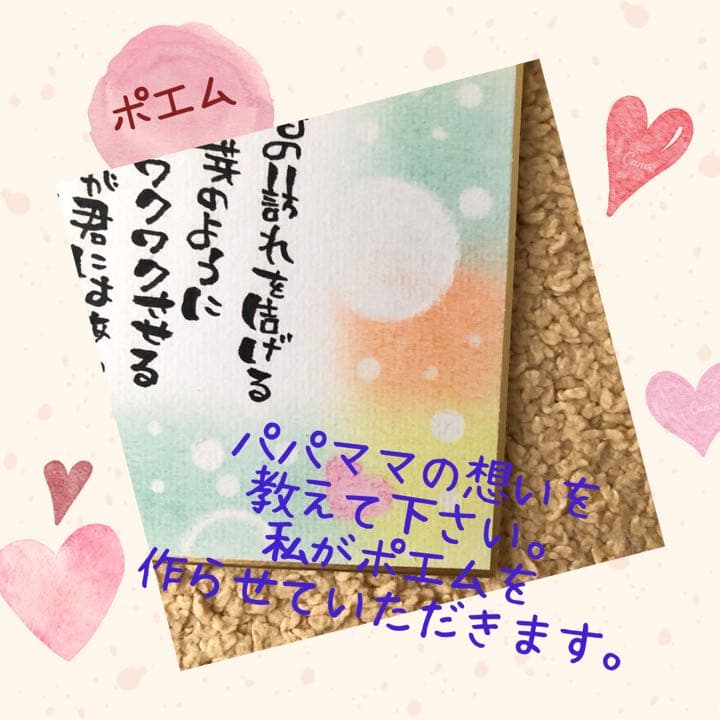 ポエム
の訪れを告げる
のように
ワクワクさせる
が君には
パパママの想いを
教えて下さい。
私がポエムを
作らせていただきます。
Canva
Canva